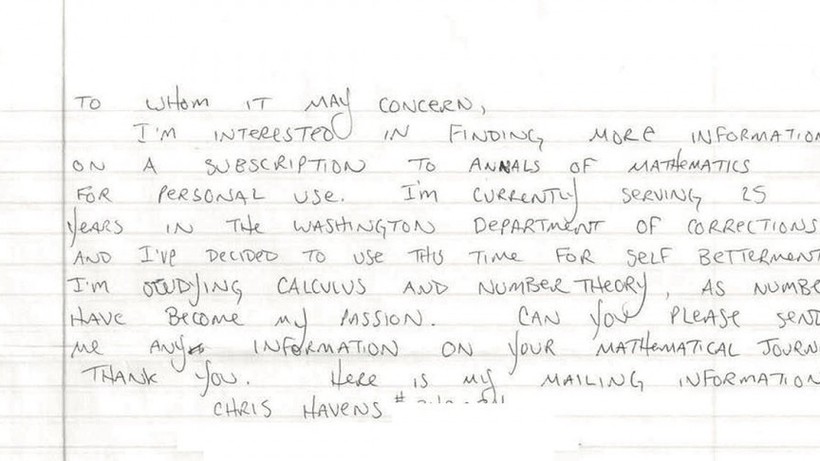 TO WHOM IT MAY CONCERN,
I'M INTERESTED IN FINDING MORE INFORMATION
ON A SUBSCRIPTION TO ANNALS OF MATHEMATICS
FOR PERSONAL USE. I'M CURRENTLY SERVING 25
YEARS IN THE WASHINGTON DEPARTMENT OF CORRECTIONS
AND I'VE DECIDED TO USE THIS TIME FOR SELF BETTERMENT
I'M STUDYING CALCULUS AND NUMBER THEORY, AS NUMBE
HAVE BECOME MY PASSION. CAN YOU PLEASE SEND
ME ANY INFORMATION ON YOUR MATHEMATICAL JOURN
THANK YOU. HERE IS MY MAILING INFORMATION
CHRIS HAVENS #